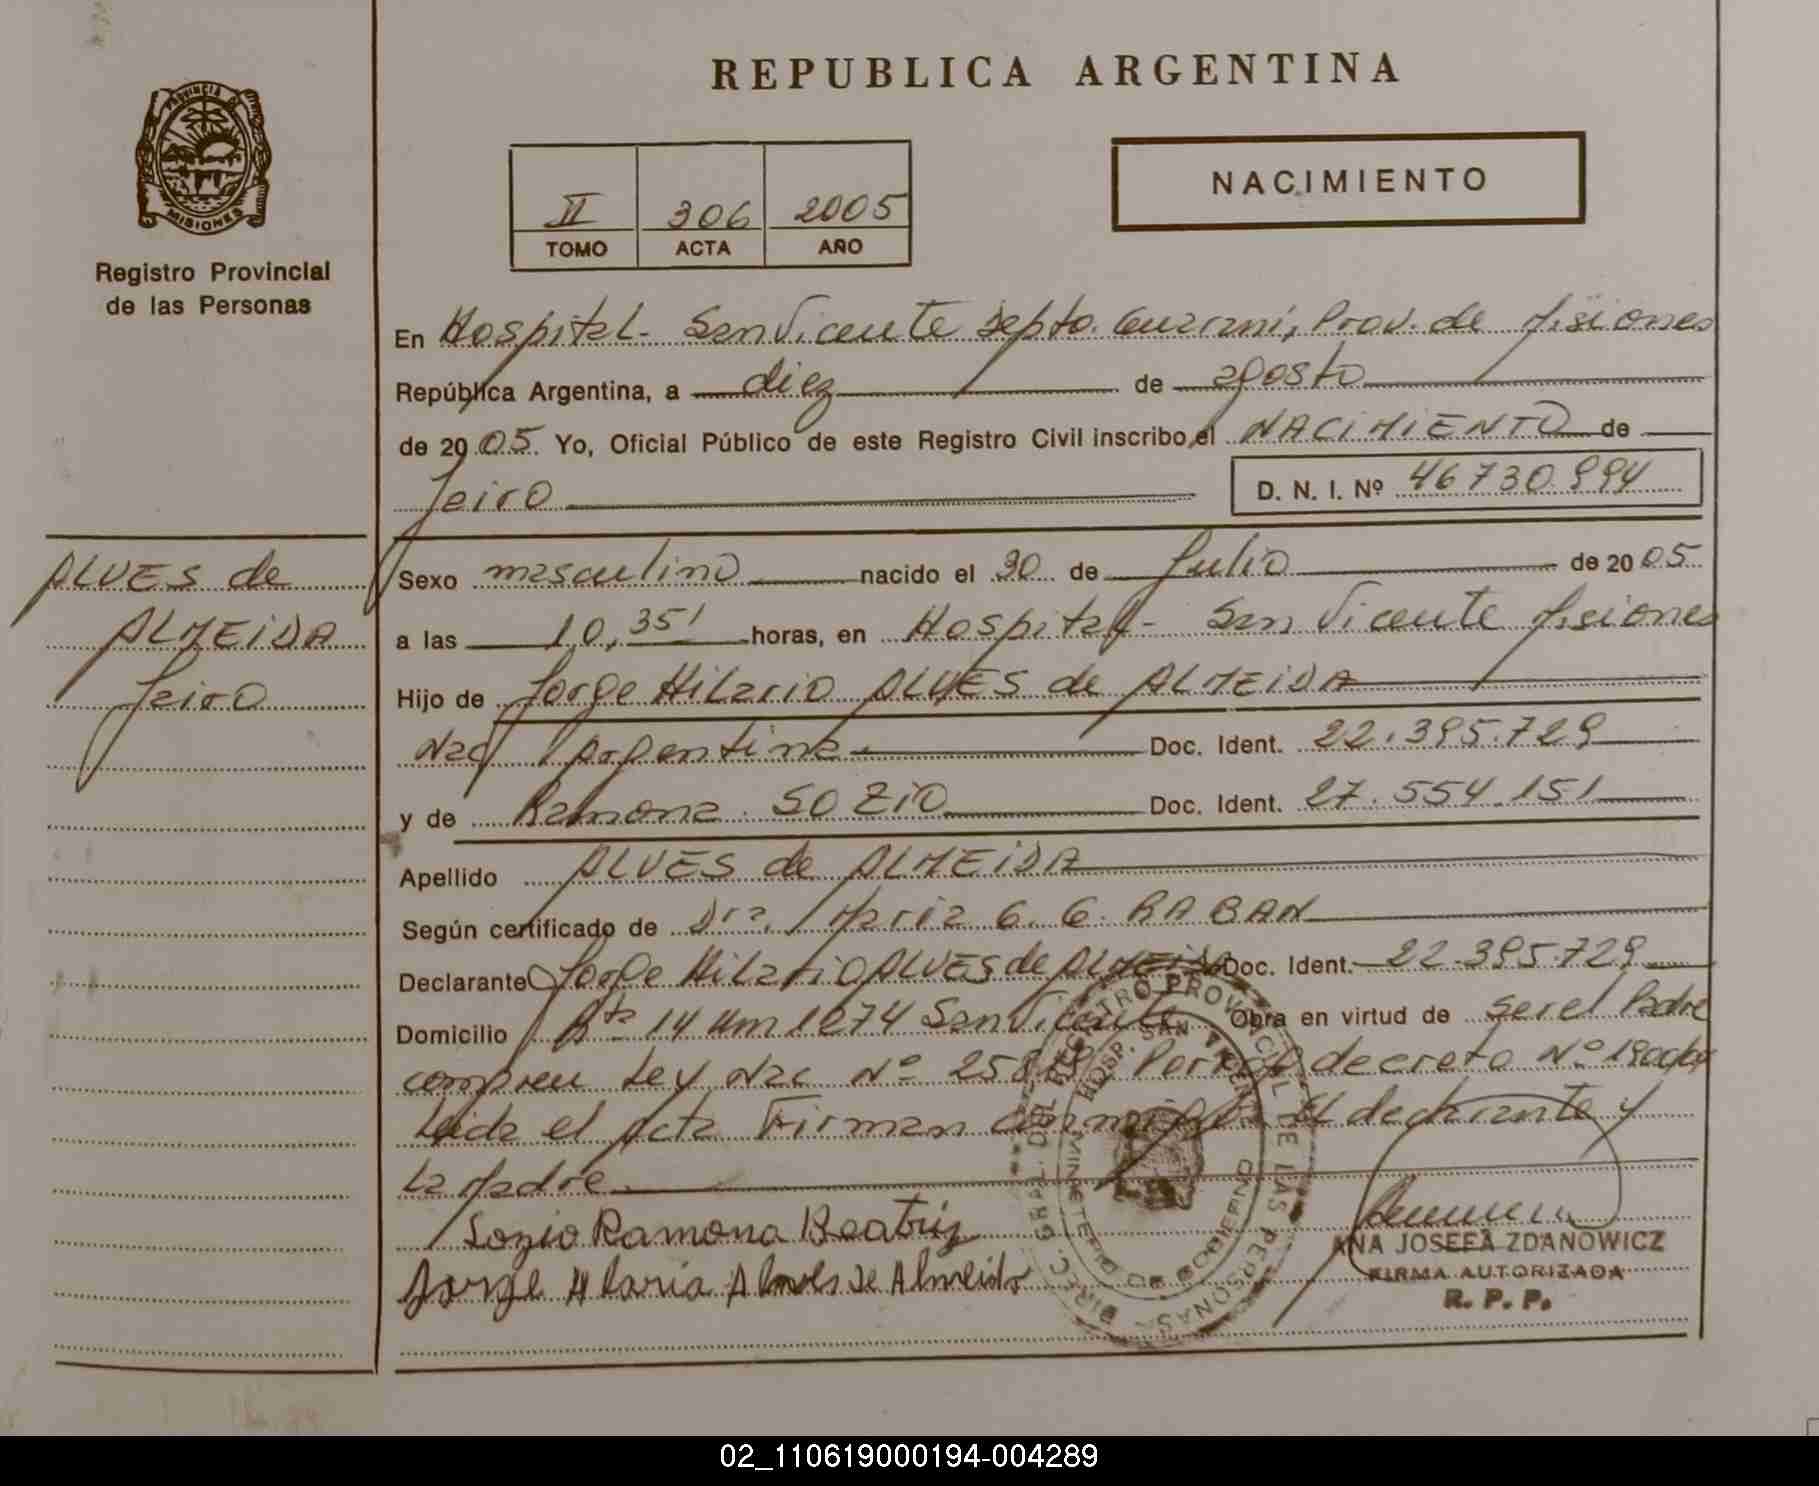 REPUBLICA ARGENTINA
PROVINCIA DE
MISIONES
Registro Provincial
de las Personas
II 306 2005
TOMO ACTA AÑO
NACIMIENTO
En Hospital - San Vicente Depto. Guarani, Prov. de Misiones
República Argentina, a diez de agosto
de 2005. Yo, Oficial Público de este Registro Civil inscribo el NACIMIENTO de
Jairo D. N. I. Nº 46730994
ALVES de
ALMEIDA
Jairo
Sexo masculino nacido el 30 de Julio de 2005
a las 10,35' horas, en Hospital - San Vicente Misiones
Hijo de Jorge Hilario ALVES de ALMEIDA
Nac Argentina. Doc. Ident. 22.395.729
y de Ramona SOZIO Doc. Ident. 27.554.151
Apellido ALVES de ALMEIDA
Según certificado de Dra. Maria G. G. RABAN
Declarante Jorge Hilario ALVES de ALMEIDA Doc. Ident. 22.395.729
Domicilio Rta 14 Km 1274 San Vicente Obra en virtud de ser el Padre
Ley Nac Nº decreto Nº
Leida el Acta Firman conmigo el declarante y
La Madre.
Sozio Ramona Beatriz
Jorge Ilario Alves de Almeida
DIREC. GRAL. DEL REGISTRO PROVINCIAL DE LAS PERSONAS
HOSP. SAN VICENTE
MINISTERIO DE GOBIERNO
ANA JOSEFA ZDANOWICZ
FIRMA AUTORIZADA
R. P. P.
02_110619000194-004289